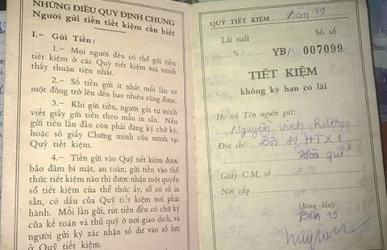 NHỮNG ĐIỀU QUY ĐỊNH CHUNG
Người gửi tiền tiết kiệm cần biết
I.- Gửi Tiền:
1.- Mọi người đều có thể gửi tiền
tiết kiệm ở các Quỹ tiết kiệm mà mình
thấy thuận tiện nhất.
2.- Số tiền gửi ít nhất mỗi lần từ
một đồng trở lên đến bao nhiêu cũng được.
3.- Khi gửi tiền, người gửi tự mình
viết giấy gửi tiền theo mẫu in sẵn. Nếu
gửi tiền lần đầu còn phải đăng ký chữ ký,
hoặc số giấy Chứng minh của mình tại
Quỹ tiết kiệm.
4.- Tiền gửi vào Quỹ tiết kiệm được
bảo đảm bí mật, an toàn; gửi tiền vào thể
thức tiết kiệm nào thì được nhận một quyển
sổ tiết kiệm của thể thức ấy, số có số in
sẵn, có dấu của Quỹ tiết kiệm nơi phát
hành. Mỗi lần gửi, rút tiền đều có chữ ký
của kế toán và thủ quỹ ở nơi giao dịch, và
người gửi ký xác nhận số dư vào sổ lưu
ở Quỹ tiết kiệm.
QUỸ TIẾT KIỆM
Lãi suất Sổ số
% / YB/ 007099
TIẾT KIỆM
không kỳ hạn có lãi
Họ và Tên người gửi:
Nguyễn
Địa chỉ: Đội 12 HTX 1
Hòa quí
Giấy C.M. số
Nơi cấp
(đóng dấu)